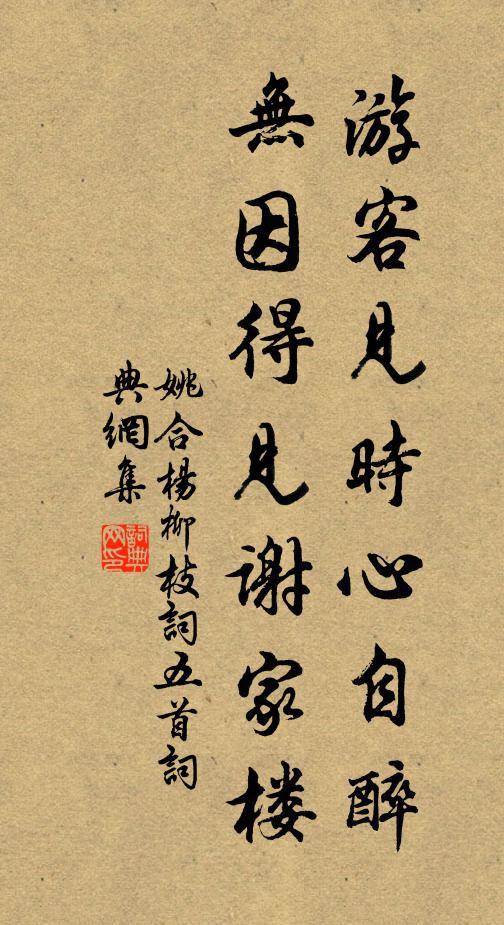 游客見時心自醉
無因得見謝家楼
姚合楊柳枝詞五首詞
典網集
詞典
网印